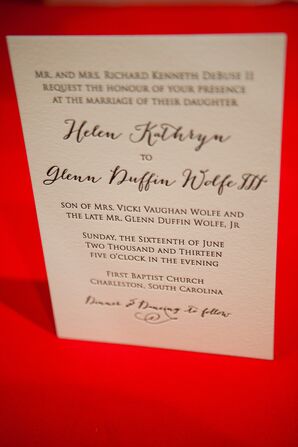 Mr. and Mrs. Richard Kenneth DeBuse II
request the honour of your presence
at the marriage of their daughter
Helen Kathryn
to
Glenn Duffin Wolfe III
son of Mrs. Vicki Vaughan Wolfe and
the late Mr. Glenn Duffin Wolfe, Jr
Sunday, the Sixteenth of June
Two Thousand and Thirteen
five o'clock in the evening
First Baptist Church
Charleston, South Carolina
Dinner & Dancing to follow